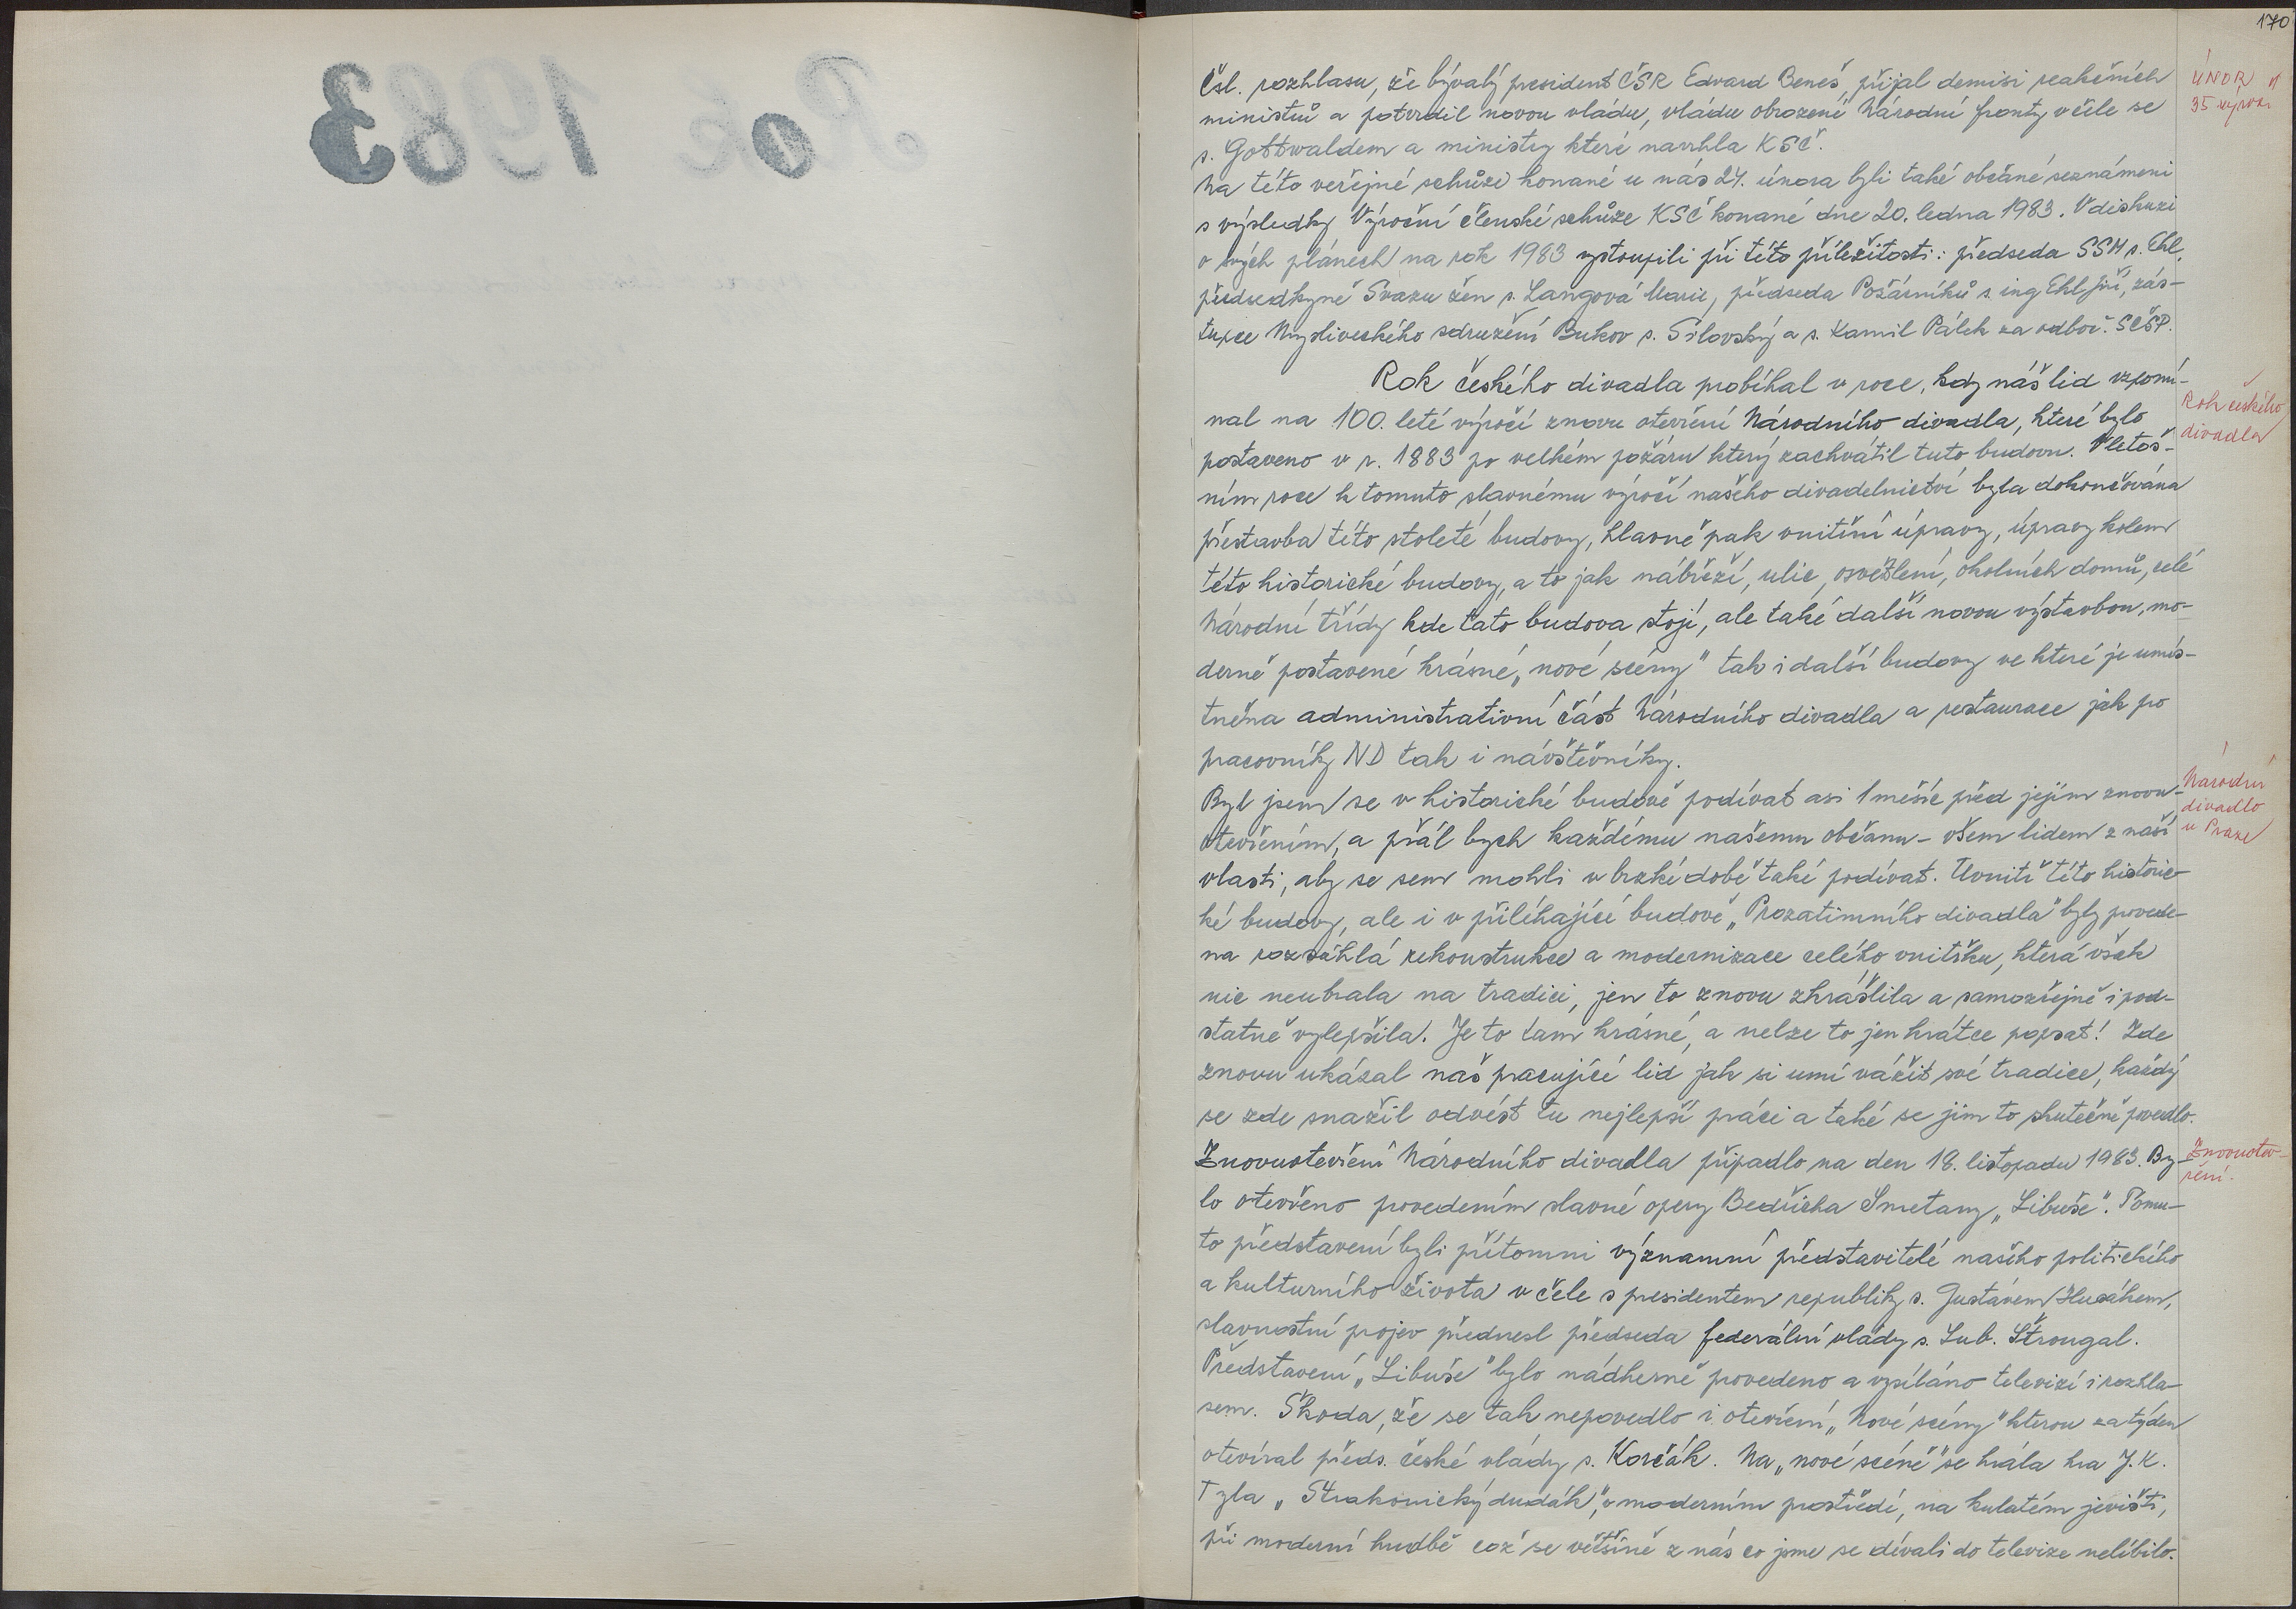 Rok 1983
170
Čsl. rozhlasu, že bývalý president ČSR Edvard Beneš, přijal demisi reakčních
ÚNOR
35 výroč.
ministrů a potvrdil novou vládu, vládu obrozené Národní fronty v čele se
s. Gottwaldem a ministry které navrhla KSČ.
Na této veřejné schůzi konané u nás 24. února byli také občané seznámeni
s výsledky Výroční členské schůze KSČ konané dne 20. ledna 1983. V diskuzi
o svých plánech na rok 1983 vystoupili při této příležitosti: předseda SSM s. Ehl,
předsedkyně Svazu žen s. Langová Marie, předseda Požárníků s. ing Ehl Jiří, zás-
tupce Mysliveckého sdružení Bukov s. Silovský a s. Kamil Pálek za odboč. SČSP.
Rok českého divadla probíhal v roce, kdy náš lid vzpomí-
Rok českého
divadla
nal na 100. leté výročí znovu otevření Národního divadla, které bylo
postaveno v r. 1883 po velkém požáru který zachvátil tuto budovu. V letoš-
ním roce k tomuto slavnému výročí našeho divadelnictví byla dokončována
přestavba této stoleté budovy, hlavně pak vnitřní úpravy, úpravy kolem
této historické budovy, a to jak nábřeží, ulic, osvětlení, okolních domů, celé
Národní třídy kde tato budova stojí, ale také další novou výstavbou, mo-
derně postavené krásné „nové scény" tak i další budovy ve které je umís-
tněna administrativní část Národního divadla a restaurace jak po
pracovníky ND tak i návštěvníky.
Byl jsem se v historické budově podívat asi 1 měsíc před jejím znovu-
Národní
divadlo
v Praze
otevřením, a přál bych každému našemu občanu - všem lidem z naší
vlasti, aby se sem mohli v brzké době také podívat. Uvnitř této historic-
ké budovy, ale i v přiléhající budově „Prozatimního divadla" byly provede-
na rozsáhlá rekonstrukce a modernizace celého vnitřku, která však
nic neubrala na tradici, jen to znovu zkrášlila a samozřejmě i pod-
statně vylepšila. Je to tam krásné, a nelze to jen krátce popsat! Zde
znovu ukázal náš pracující lid jak si umí vážit své tradice, každý
se zde snažil odvést tu nejlepší práci a také se jim to skutečně povedlo.
Znovuotevření Národního divadla připadlo na den 18. listopadu 1983. By-
Znovuotev-
ření.
lo otevřeno provedením slavné opery Bedřicha Smetany „Libuše". Tomu-
to představení byli přítomni významní představitelé našeho politického
a kulturního života v čele s presidentem republiky s. Gustávem Husákem,
slavnostní projev přednesl předseda federální vlády s. Lub. Štrougal.
Představení „Libuše" bylo nádherně provedeno a vysíláno televizí i rozhla-
sem. Škoda, že se tak nepovedlo i otevření „Nové scény" kterou za týden
otevíral předs. české vlády s. Korčák. Na „nové scéně" se hrála hra J. K.
Tyla „Strakonický dudák", v moderním prostředí, na kulatém jevišti,
při moderní hudbě což se většině z nás co jsme se dívali do televize nelíbilo.